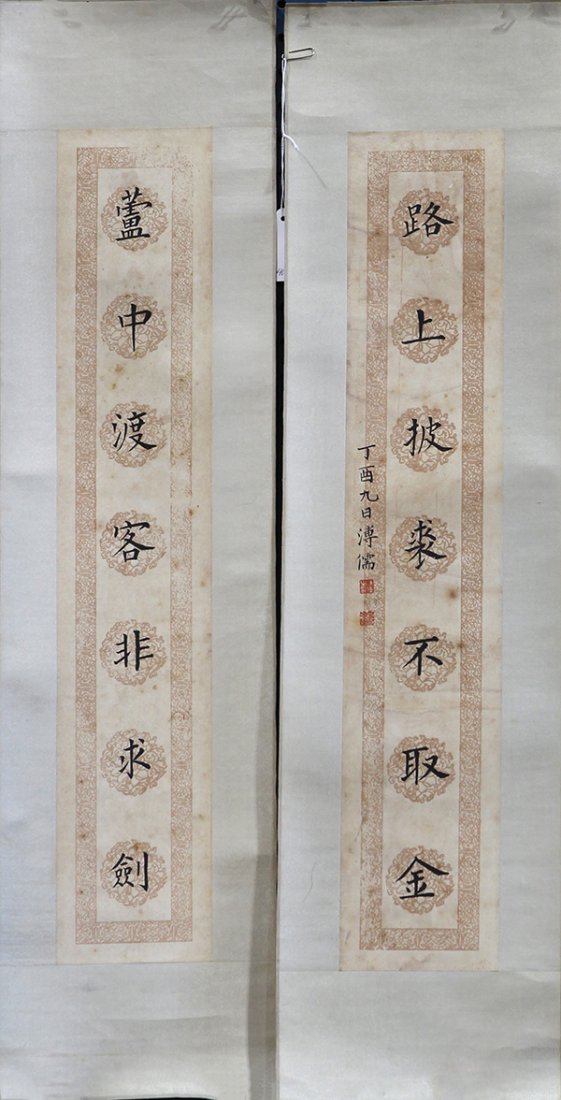 蘆中渡客非求劍
路上披裘不取金
丁酉九日溥儒